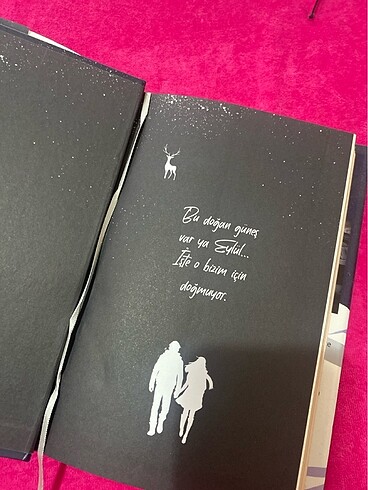 Bu doğan güneş
var ya Eylül...
İşte o bizim için
doğmuyor.